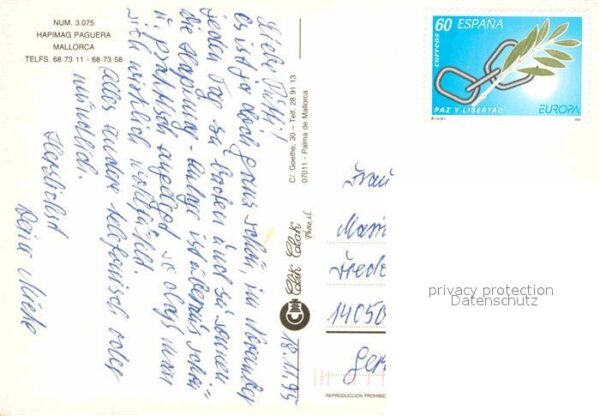 NUM. 3.075
HAPIMAG PAGUERA
MALLORCA
TELFS. 68 73 11 - 68 73 58
60 ESPAÑA
correos
PAZ Y LIBERTAD
EUROPA
es ist ja doch ganz schön, im November
jeden Tag zu baden und zu sonnen
die Hapimag-Anlage ist überaus schön
u. praktisch angelegt so dass man
sich wirklich wohlfühlt.
Alles andere telefonisch oder
mündlich.
Herzlichst
Deine
18.11.95
C/. Goethe, 30 – Telf. 28 91 13
07011 - Palma de Mallorca
Clak Clak
Foto, s.l.
REPRODUCCION PROHIBID
Frau
Frede
14050
Ger
privacy protection
Datenschutz